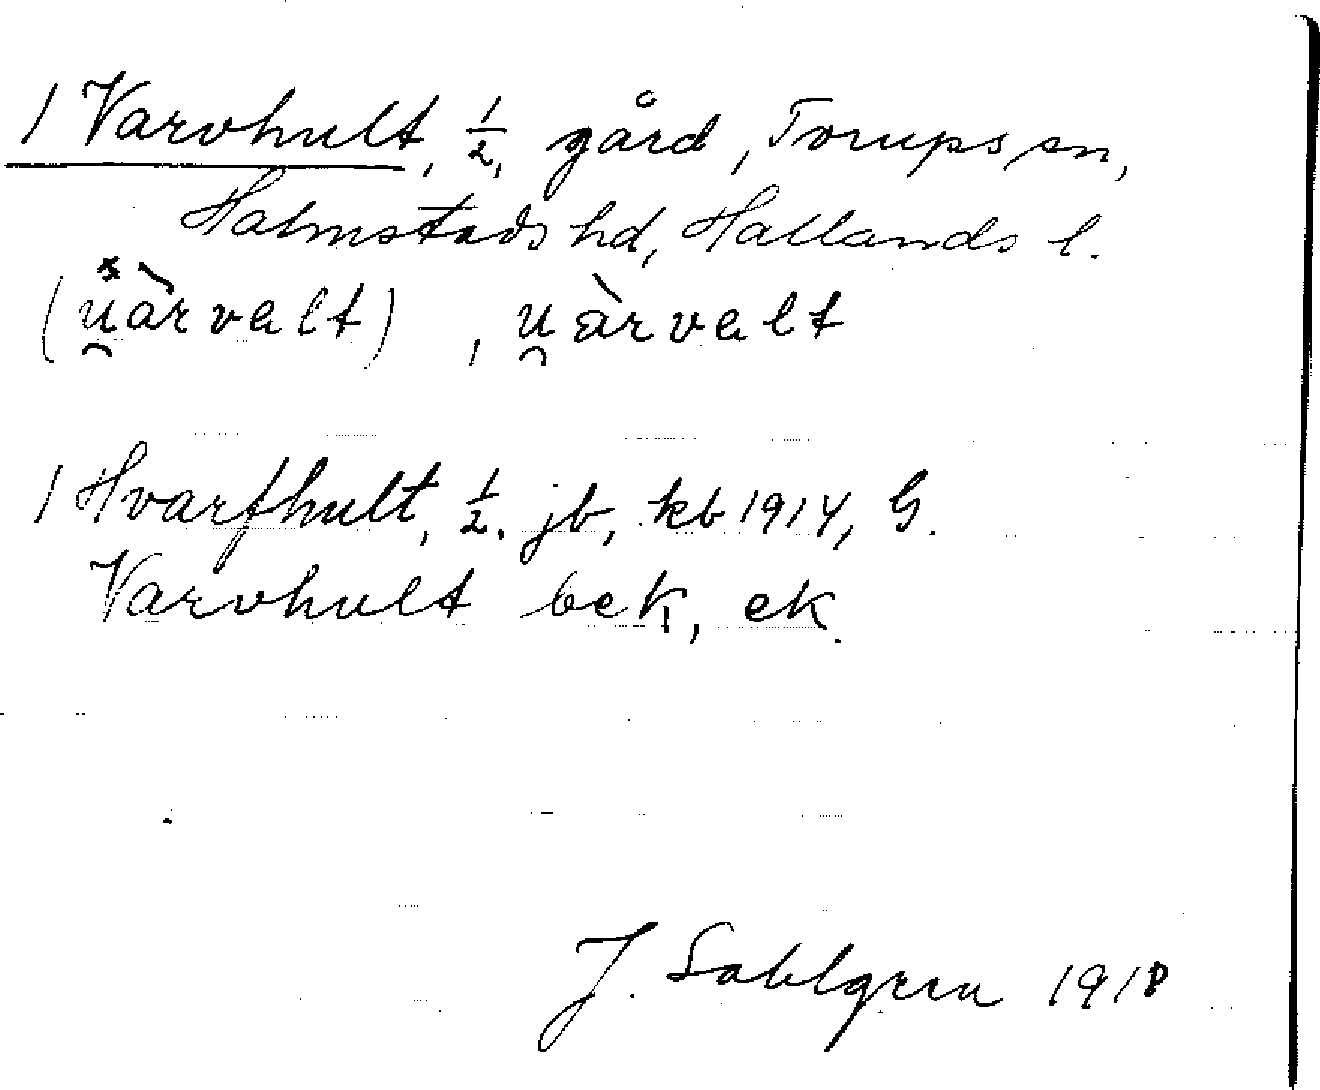 1 Varvhult, ½, gård, Torups sn,
Halmstads hd, Hallands l.
(u̯àrvalt), u̯àrvalt
1 Hvarfhult, ½. jb, kb 1914, G.
Varvhult bek, ek.
J. Sahlgren 1918